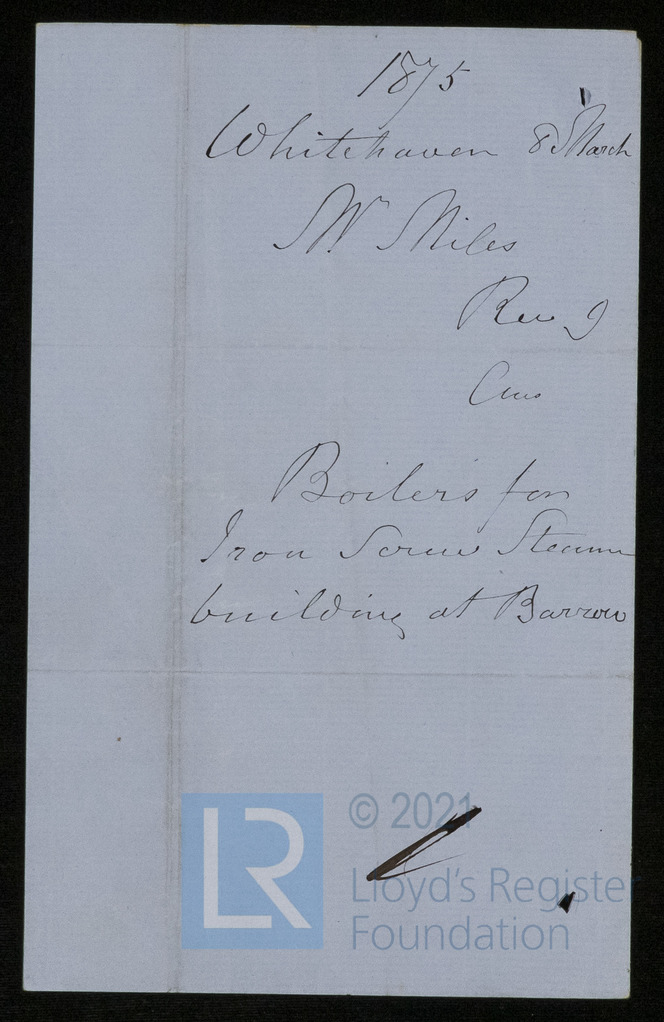 1875
Whitehaven 8 March
Mr Miles
Rec 9
Ans
Boilers for
Iron Screw Steamer
building at Barrow
LR
© 2021
Lloyd's Register
Foundation